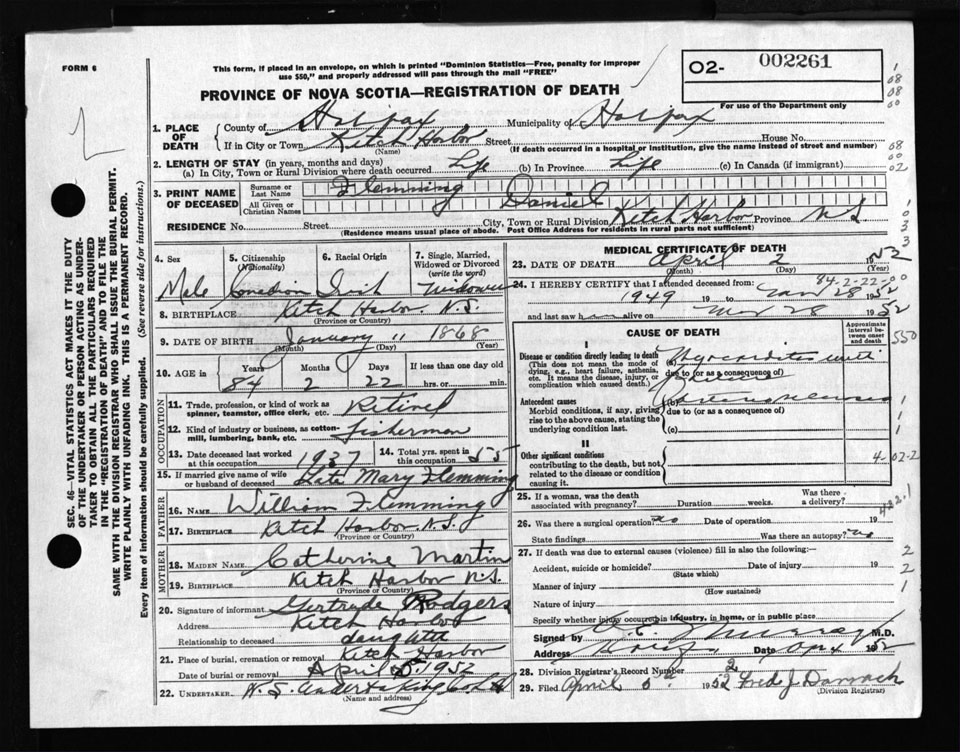 FORM 6
This form, if placed in an envelope, on which is printed "Dominion Statistics—Free, penalty for improper
use $50," and properly addressed will pass through the mail "FREE"
PROVINCE OF NOVA SCOTIA—REGISTRATION OF DEATH
O2- 002261
For use of the Department only
SEC. 46—VITAL STATISTICS ACT MAKES IT THE DUTY
OF THE UNDERTAKER OR PERSON ACTING AS UNDER-
TAKER TO OBTAIN ALL THE PARTICULARS REQUIRED
IN THE "REGISTRATION OF DEATH" AND TO FILE THE
SAME WITH THE DIVISION REGISTRAR WHO SHALL ISSUE THE BURIAL PERMIT.
WRITE PLAINLY WITH UNFADING INK. THIS IS A PERMANENT RECORD.
Every item of information should be carefully supplied. (See reverse side for instructions.)
1. PLACE OF DEATH
County of Halifax Municipality of Halifax
If in City or Town Ketch Harbor Street House No.
(Name) (If death occurred in a hospital or institution, give the name instead of street and number)
2. LENGTH OF STAY (in years, months and days)
(a) In City, Town or Rural Division where death occurred Life (b) In Province Life (c) In Canada (if immigrant)
3. PRINT NAME OF DECEASED
Surname or Last Name Flemming
All Given or Christian Names Daniel
RESIDENCE No. Street City, Town or Rural Division Ketch Harbor Province N.S.
(Residence means usual place of abode. Post Office Address for residents in rural parts not sufficient)
4. Sex 5. Citizenship (Nationality) 6. Racial Origin 7. Single, Married, Widowed or Divorced (write the word)
Male Canadian Irish Widower
8. BIRTHPLACE Ketch Harbor N.S.
(Province or Country)
9. DATE OF BIRTH January 11 1868
(Month) (Day) (Year)
10. AGE in Years Months Days If less than one day old
84 2 22 hrs. or min.
OCCUPATION
11. Trade, profession, or kind of work as spinner, teamster, office clerk, etc. Retired
12. Kind of industry or business, as cotton-mill, lumbering, bank, etc. Fisherman
13. Date deceased last worked at this occupation 1937 14. Total yrs. spent in this occupation 55
15. If married give name of wife or husband of deceased Late Mary Flemming
FATHER
16. NAME William Flemming
17. BIRTHPLACE Ketch Harbor N.S.
(Province or Country)
MOTHER
18. MAIDEN NAME Catherine Martin
19. BIRTHPLACE Ketch Harbor N.S.
(Province or Country)
20. Signature of informant Gertrude Rodgers
Address Ketch Harbor
Relationship to deceased daughter
21. Place of burial, cremation or removal Ketch Harbor
Date of burial or removal April 5 1952
22. UNDERTAKER N.S. Undertaking Co Ltd
(Name and address)
MEDICAL CERTIFICATE OF DEATH
23. DATE OF DEATH April 2 1952
(Month) (Day) (Year)
84-2-22-00
24. I HEREBY CERTIFY that I attended deceased from:
1949 19 to 28 1952
and last saw h alive on 28 1952
CAUSE OF DEATH
Approximate interval between onset and death
I
Disease or condition directly leading to death
(This does not mean the mode of dying, e.g., heart failure, asthenia, etc. It means the disease, injury, or complication which caused death.)
Myocarditis with
due to (or as a consequence of)
Antecedent causes
Morbid conditions, if any, giving rise to the above cause, stating the underlying condition last.
due to (or as a consequence of)
(c)
II
Other significant conditions
contributing to the death, but not related to the disease or condition causing it.
25. If a woman, was the death associated with pregnancy? Duration weeks. Was there a delivery?
26. Was there a surgical operation? no Date of operation 19
State findings Was there an autopsy? no
27. If death was due to external causes (violence) fill in also the following:—
Accident, suicide or homicide? Date of injury 19
(State which)
Manner of injury
(How sustained)
Nature of injury
Specify whether injury occurred in industry, in home, or in public place
Signed by Murray M.D.
Address Date Apr 4 1952
28. Division Registrar's Record Number 2
29. Filed April 5 1952 Fred J. Darrach
(Division Registrar)